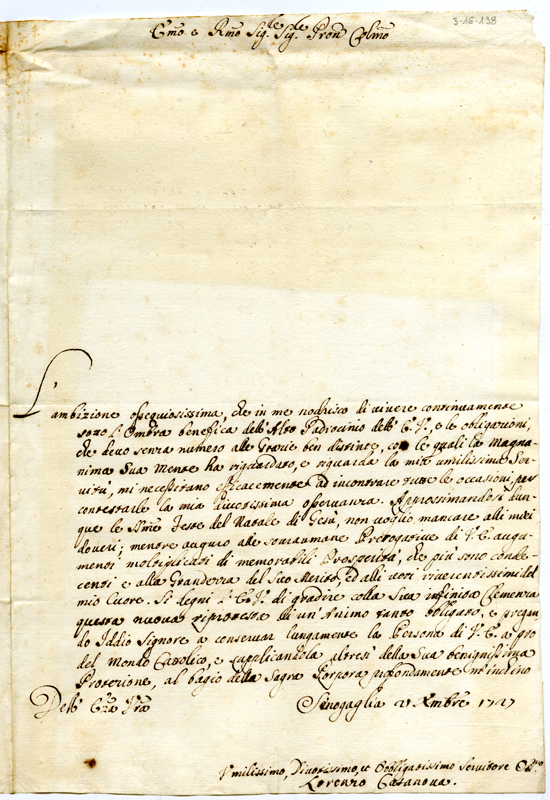 3-16-138
Emo e Rmo Sig.re Sig.re Pron Colmo
L'ambizione ossequiosissima, che in me nodrisco di vivere continuamente
sotto l'Ombra benefica dell'Alto Padrocinio dell'E. V., e le obligazioni,
che devo senza numero alle Grazie ben distinte, con le quali la Magna-
nima Sua Mente ha riguardato, e riguarda la mia umilissima Ser-
vitù, mi necessitano efficacemente ad incontrare tutte le occasioni, per
contestarle la mia divotissima osservanza. Approssimandosi dun-
que le Sme Feste del Natale di Gesù, non voglio mancare alli miei
doveri; mentre auguro alle sovraumane Prerogative di V. E. augu-
menti moltiplicati di memorabili Prosperità, che più sono conde-
centi e alla Grandezza del Suo Merito, ed alli voti riverentissimi del
mio Cuore. Si degni l'E. V. di gradire colla Sua infinita Clemenza
questa nuova riprotesta di un'Animo tanto obligato, e pregan-
do Iddio Signore a conservar lungamente la Persona di V. E. a pro
del Mondo Cattolico, e supplicandola altresì della Sua benignissima
Protezione, al bagio della Sagra Porpora profondamente m'inchino
Dell' Eza Vra Sinogaglia 21 Xmbre 1727
Umilissimo, Divotissimo, et Obbligatissimo Servitore
Lorenzo Casanova.